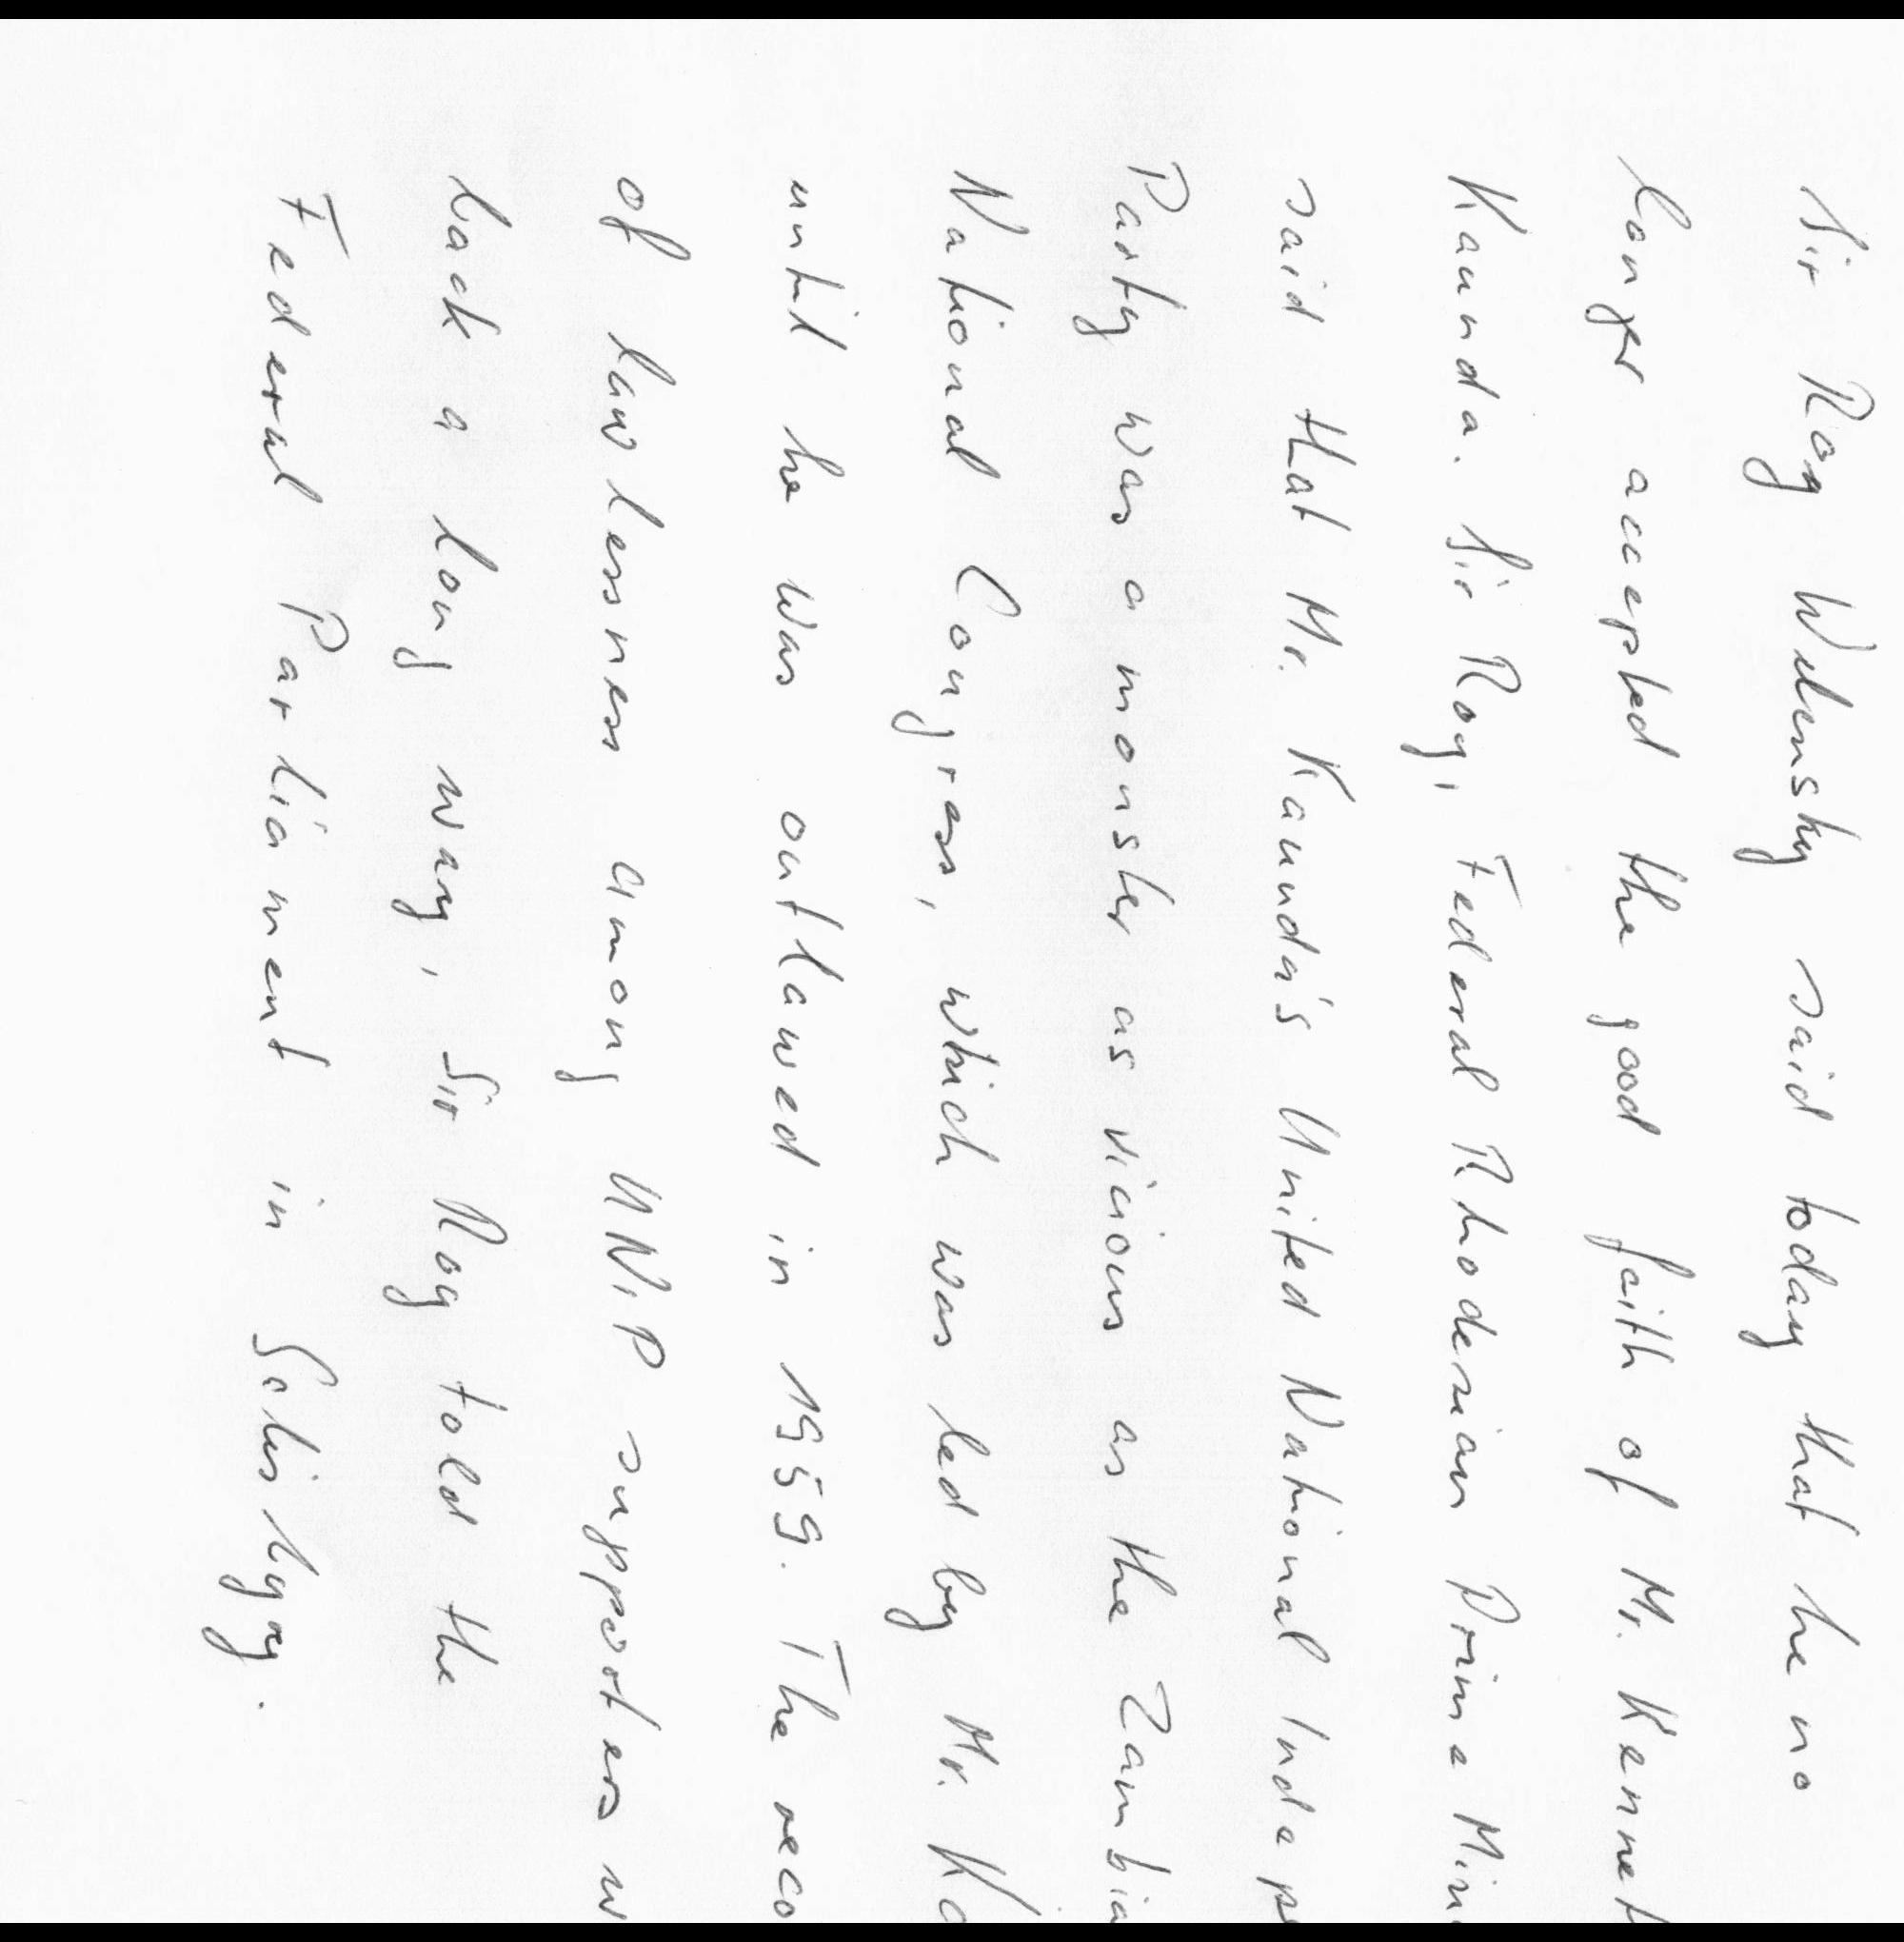 Sir Roy Welensky said today that he no
longer accepted the good faith of Mr. Kennet
Kaunda. Sir Roy, Federal Rhodesian Prime Min
said that Mr. Kaunda's United National Indep
Party was a monster as vicious as the Zambia
National Congress, which was led by Mr. Ka
until he was outlawed in 1959. The reco
of lawlessness among UNIP supporters w
back a long way, Sir Roy told the
Federal Parliament in